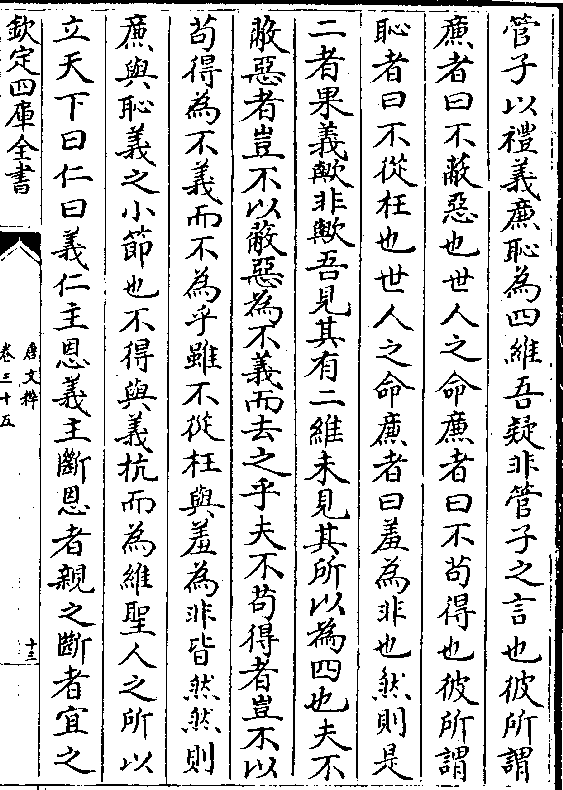 管子以禮義㢘恥為四維吾疑非管子之言也彼所謂
㢘者曰不蔽惡也世人之命㢘者曰不苟得也彼所謂
恥者曰不從枉也世人之命㢘者曰羞為非也然則是
二者果義歟非歟吾見其有二維未見其所以為四也夫不
蔽惡者豈不以蔽惡為不義而去之乎夫不苟得者豈不以
苟得為不義而不為乎雖不從枉與羞為非皆然然則
㢘與恥義之小節也不得與義抗而為維聖人之所以
立天下曰仁曰義仁主恩義主斷恩者親之斷者宜之
欽定四庫全書
唐文粹
卷三十五
十三